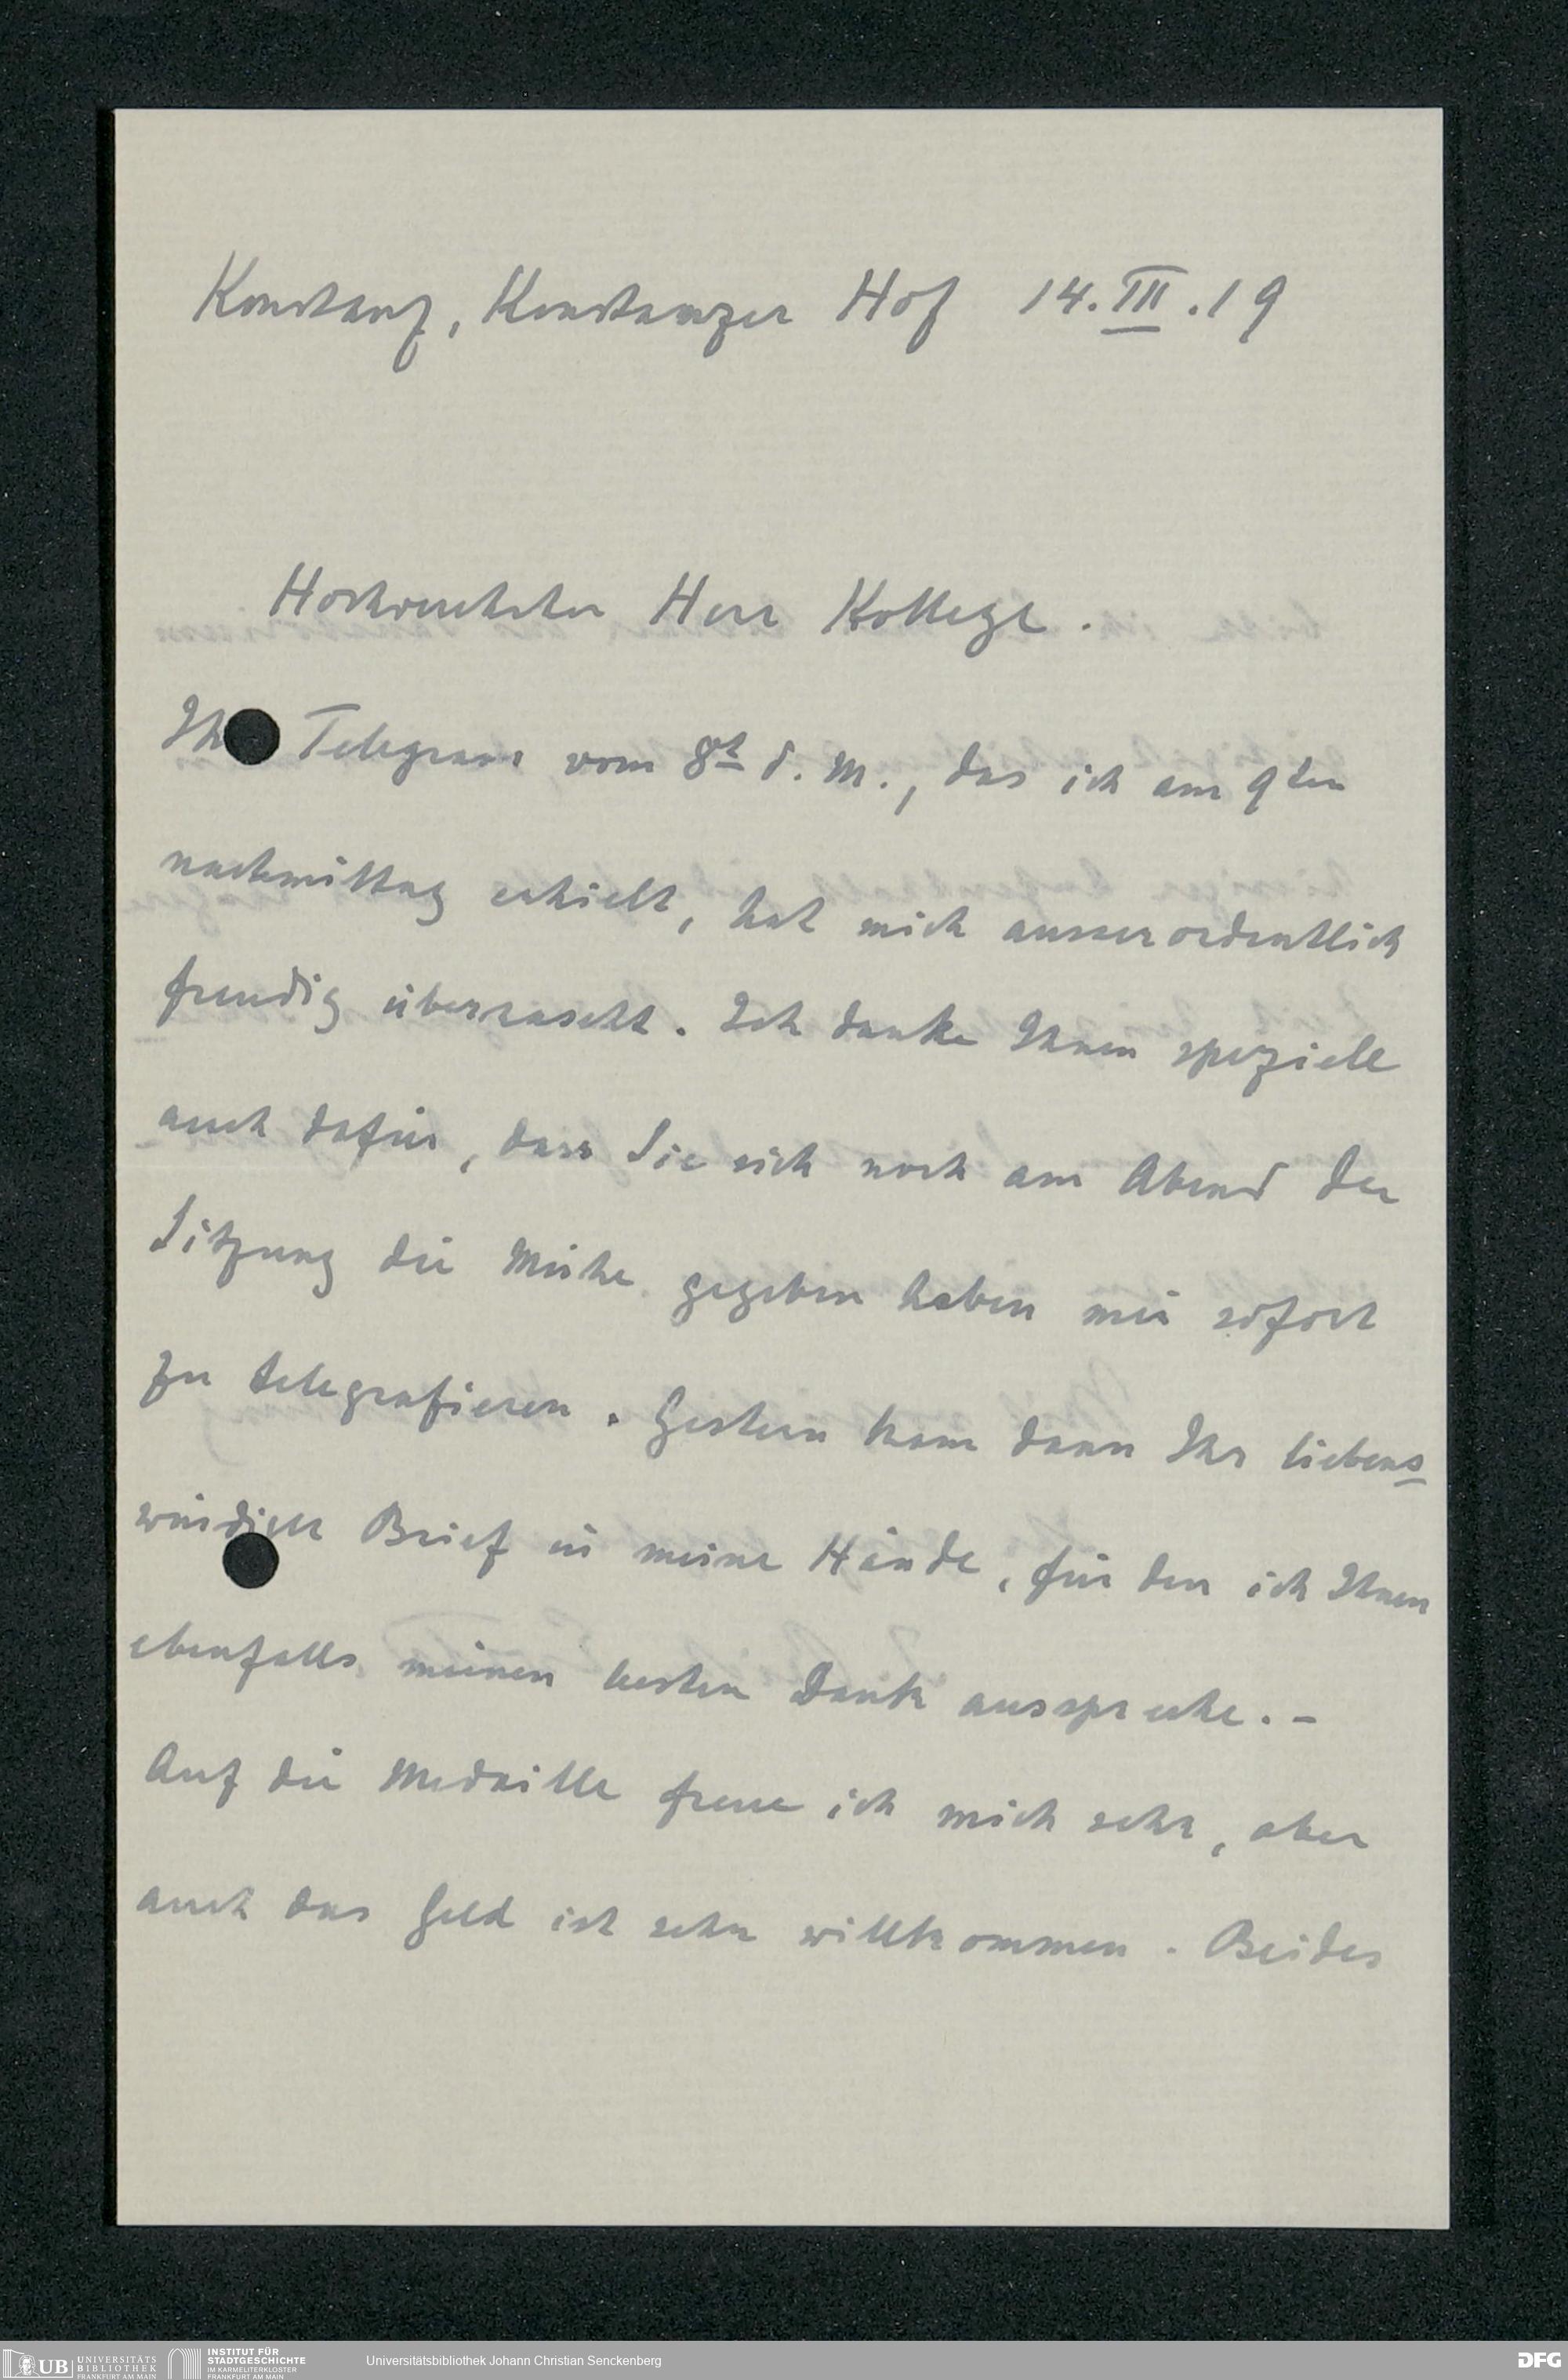 Konstanz, Konstanzer Hof 14.III.19
Hochverehrter Herr Kollege.
Ihr Telegramm vom 8t d. M., das ich am 9ten
nachmittag erhielt, hat mich ausserordentlich
freudig überrascht. Ich danke Ihnen speziell
auch dafür, dass Sie sich noch am Abend der
Sitzung die Mühe gegeben haben mir sofort
zu telegrafieren. Gestern kam dann Ihr liebens
würdiger Brief in meine Hände, für den ich Ihnen
ebenfalls meinen besten Dank ausspreche. –
Auf die Medaille freue ich mich sehr, aber
auch das Geld ist sehr willkommen. Beides
UB UNIVERSITÄTS BIBLIOTHEK FRANKFURT AM MAIN
INSTITUT FÜR STADTGESCHICHTE IM KARMELITERKLOSTER FRANKFURT AM MAIN
Universitätsbibliothek Johann Christian Senckenberg
DFG